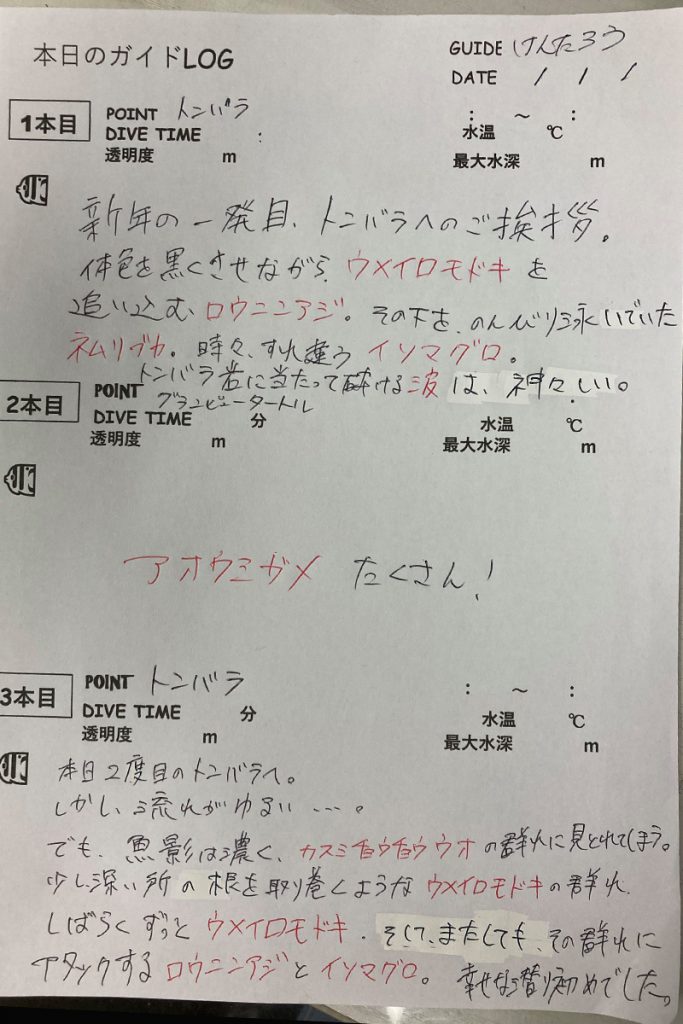 本日のガイドLOG
GUIDE けんたろう
DATE / / /
1本目
POINT トンバラ
DIVE TIME :
: ~ :
透明度 m
水温 ℃
最大水深 m
新年の一発目、トンバラへのご挨拶。
体色を黒くさせながら、ウメイロモドキを
追い込む、ロウニンアジ。その下を、のんびり泳いでいた
ネムリブカ。時々、すれ違うイソマグロ。
トンバラ岩に当たって砕ける波は、神々しい。
2本目
POINT グランビュータートル
DIVE TIME 分
透明度 m
水温 ℃
最大水深 m
アオウミガメ たくさん!
3本目
POINT トンバラ
DIVE TIME 分
: ~ :
透明度 m
水温 ℃
最大水深 m
本日2度目のトンバラへ。
しかし、流れがゆるい…。
でも、魚影は濃く、カスミチョウチョウウオの群れに見とれてしまう。
少し深い所の根を取り巻くようなウメイロモドキの群れ
しばらくずっとウメイロモドキ。そして、またしても、その群れに
アタックするロウニンアジとイソマグロ。幸せな潜り初めでした。